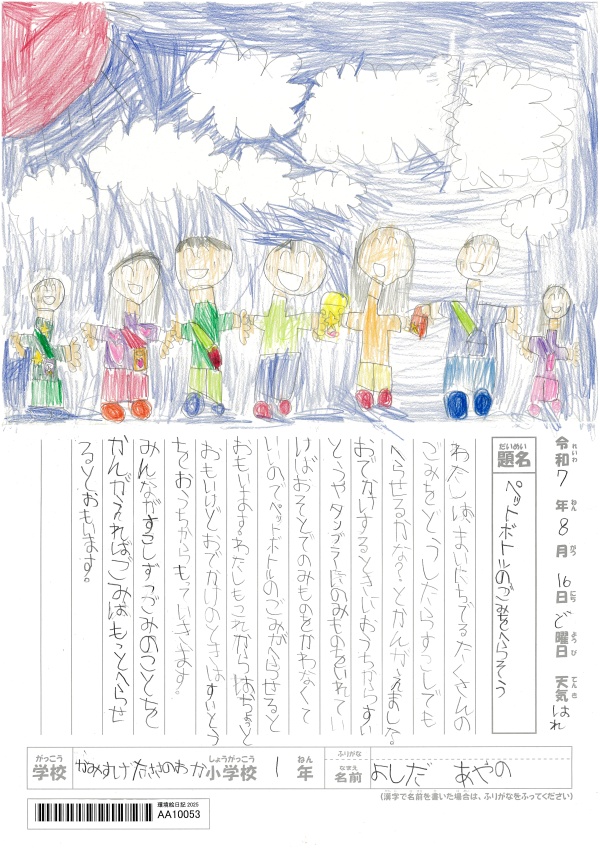 令和7年8月16日ど曜日 天気はれ
れいわ ねん がつ にち ようび てんき
だいめい
題名
ペットボトルのごみをへらそう
わたしは、まいにちでるたくさんの
ごみをどうしたらすこしでも
へらせるかな?とかんがえました。
おでかけするときにおうちからすい
とうやタンブラーにのみものをいれてい
けばおそとでのみものをかわなくて
いいのでペットボトルのごみがへらせると
おもいます。わたしもこれからはちょっと
おもいけどおでかけのときはすいとう
をおうちからもっていきます。
みんながすこしずつごみのことを
かんがえればごみはもっとへらせ
るとおもいます。
がっこう しょうがっこう ねん ふりがな
学校 かみすげたささのおか小学校 1年
なまえ
名前 よしだ あやの
(漢字で名前を書いた場合は、ふりがなをふってください)
環境絵日記2025
AA10053